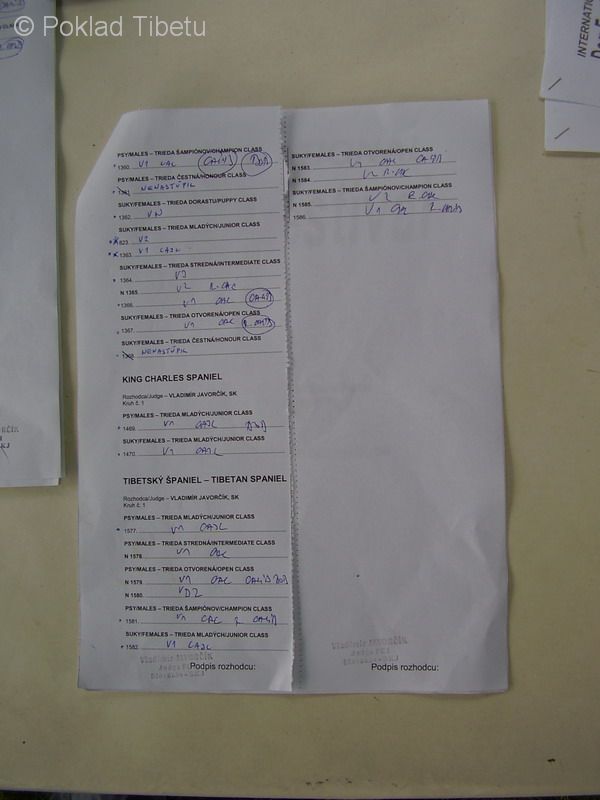 © Poklad Tibetu
INTERNATIO
PSY/MALES – TRIEDA ŠAMPIÓNOV/CHAMPION CLASS
1360. V1 CAC CACIB BOB
PSY/MALES – TRIEDA ČESTNÁ/HONOUR CLASS
1361. NENASTÚPIL
SUKY/FEMALES – TRIEDA DORASTU/PUPPY CLASS
1362. VN
SUKY/FEMALES – TRIEDA MLADÝCH/JUNIOR CLASS
V2
1363. V1 CAJC
SUKY/FEMALES – TRIEDA STREDNÁ/INTERMEDIATE CLASS
1364.
N 1365. V2 R.CAC
1366. V1 CAC CACIB
SUKY/FEMALES – TRIEDA OTVORENÁ/OPEN CLASS
1367. V1 CAC R.CACIB
SUKY/FEMALES – TRIEDA ČESTNÁ/HONOUR CLASS
1368. NENASTÚPIL
KING CHARLES SPANIEL
Rozhodca/Judge – VLADIMÍR JAVORČÍK, SK
Kruh č. 1
PSY/MALES – TRIEDA MLADÝCH/JUNIOR CLASS
1469. V1 CAJC BOB
SUKY/FEMALES – TRIEDA MLADÝCH/JUNIOR CLASS
1470. V1 CAJC
TIBETSKÝ ŠPANIEL – TIBETAN SPANIEL
Rozhodca/Judge – VLADIMÍR JAVORČÍK, SK
Kruh č. 1
PSY/MALES – TRIEDA MLADÝCH/JUNIOR CLASS
1577. V1 CAJC
PSY/MALES – TRIEDA STREDNÁ/INTERMEDIATE CLASS
N 1578. V1 CAC
PSY/MALES – TRIEDA OTVORENÁ/OPEN CLASS
N 1579. V1 CAC CACIB BOB
N 1580. VD2
PSY/MALES – TRIEDA ŠAMPIÓNOV/CHAMPION CLASS
1581. V1 CAC R CACIB
SUKY/FEMALES – TRIEDA MLADÝCH/JUNIOR CLASS
1582. V1 CAJC
Podpis rozhodcu:
SUKY/FEMALES – TRIEDA OTVORENÁ/OPEN CLASS
N 1583. V1 CAC CACIB
N 1584. V2 R.CAC
SUKY/FEMALES – TRIEDA ŠAMPIÓNOV/CHAMPION CLASS
N 1585. V2 R.CAC
1586. V1 CAC R.CACIB
Podpis rozhodcu: